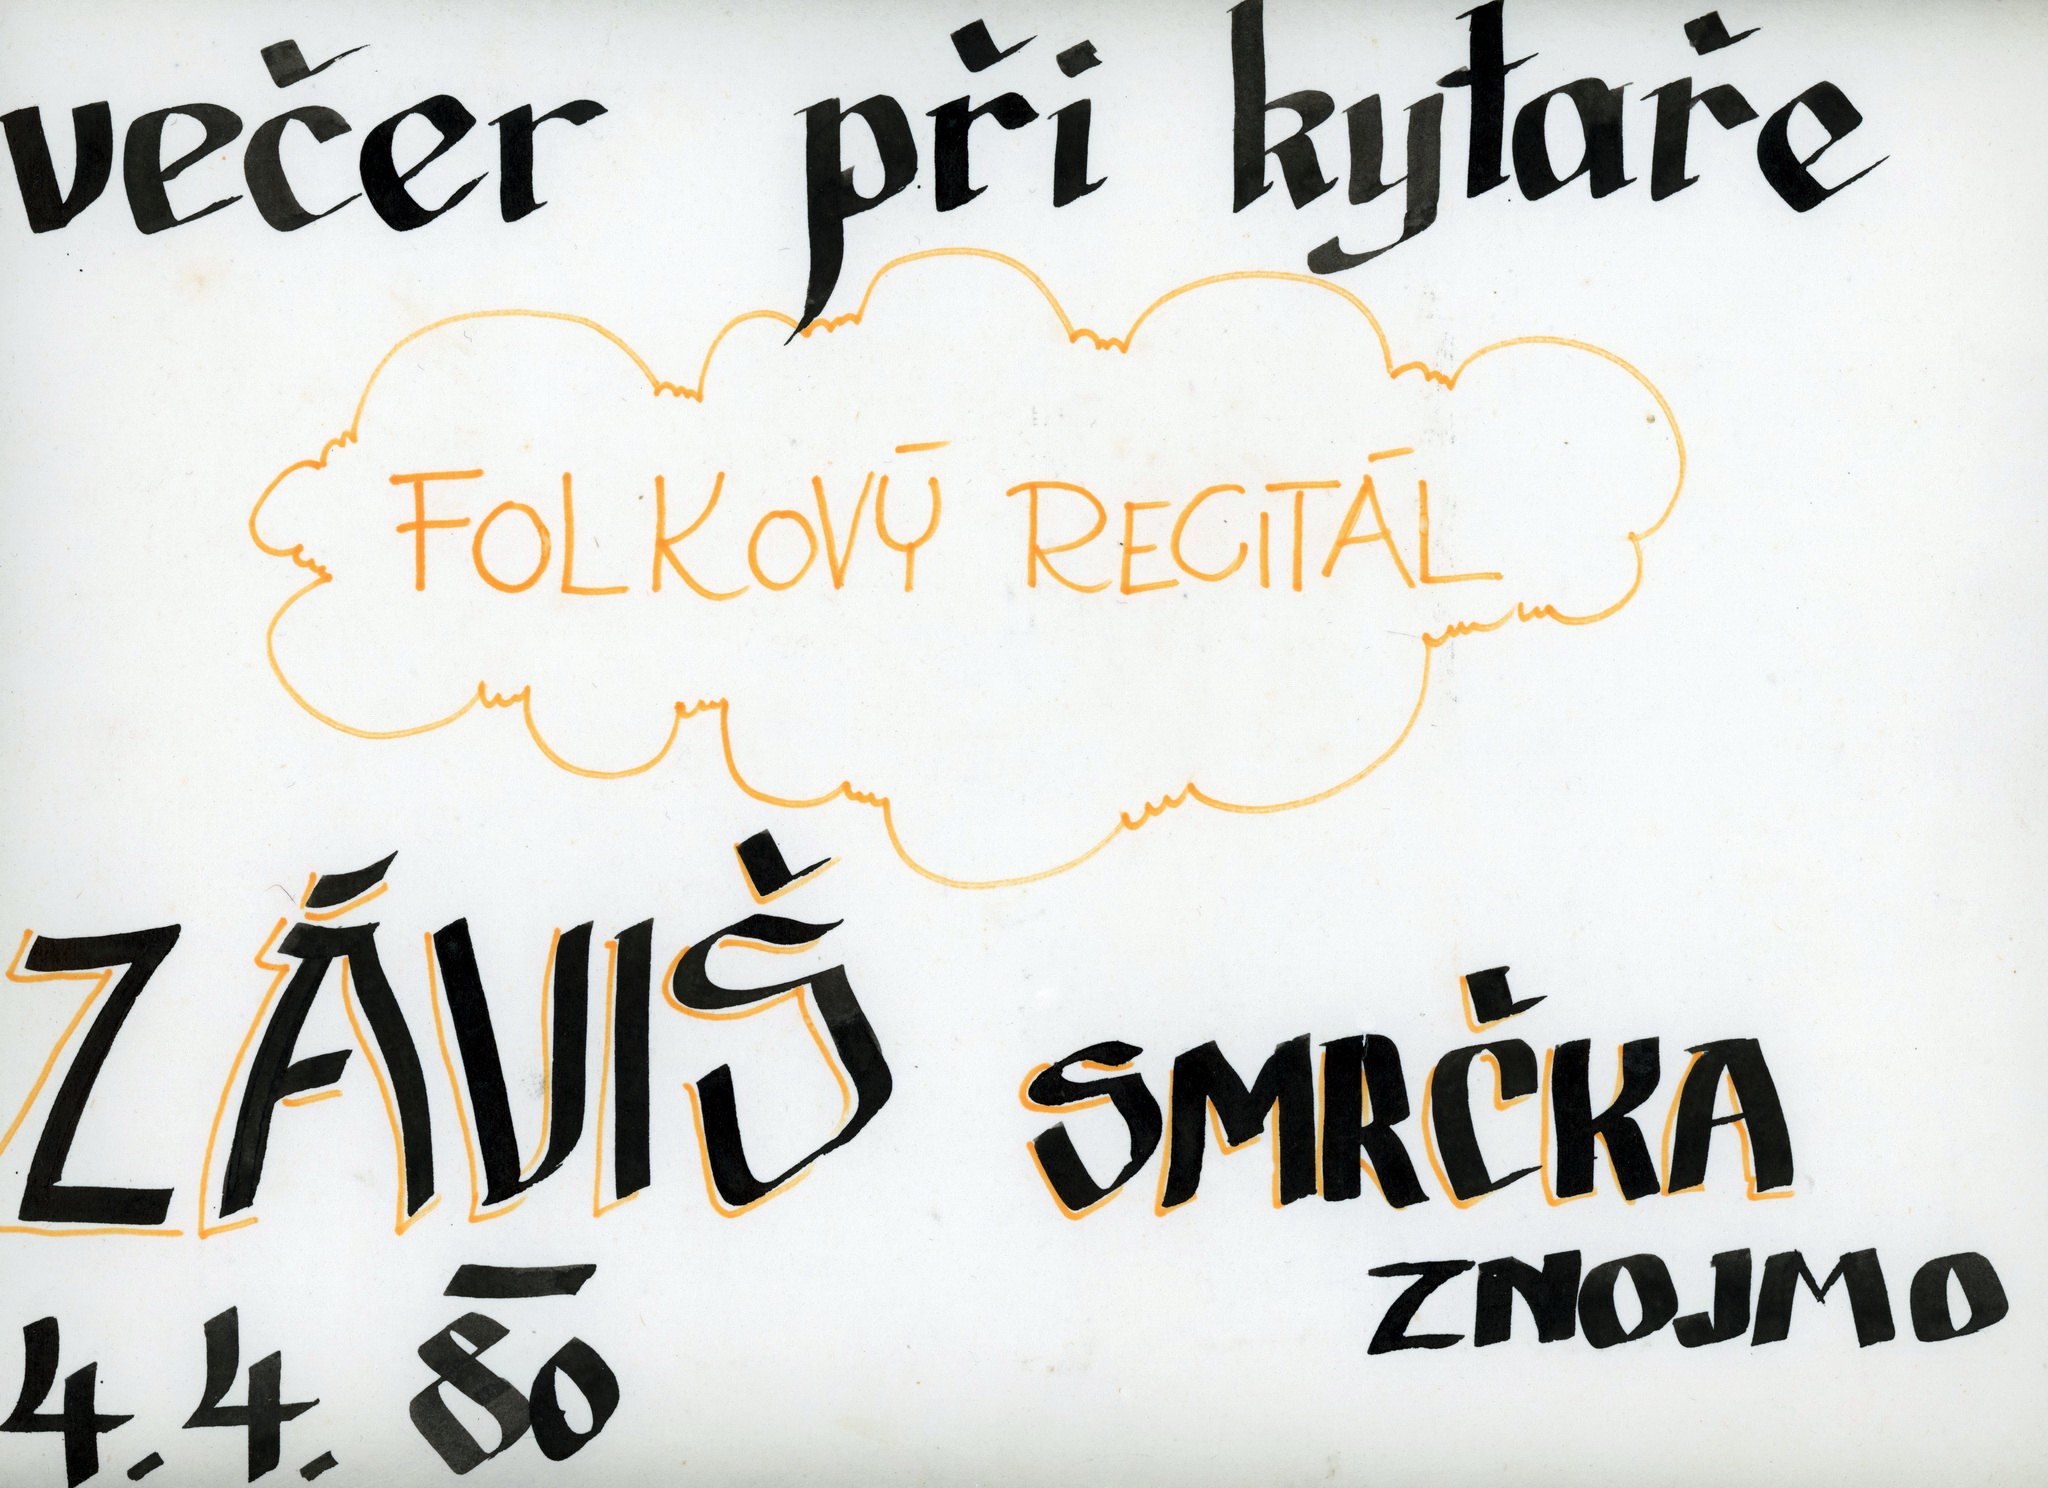 večer při kytaře
FOLKOVÝ RECITÁL
ZÁVIŠ SMRČKA
ZNOJMO
4. 4. 80